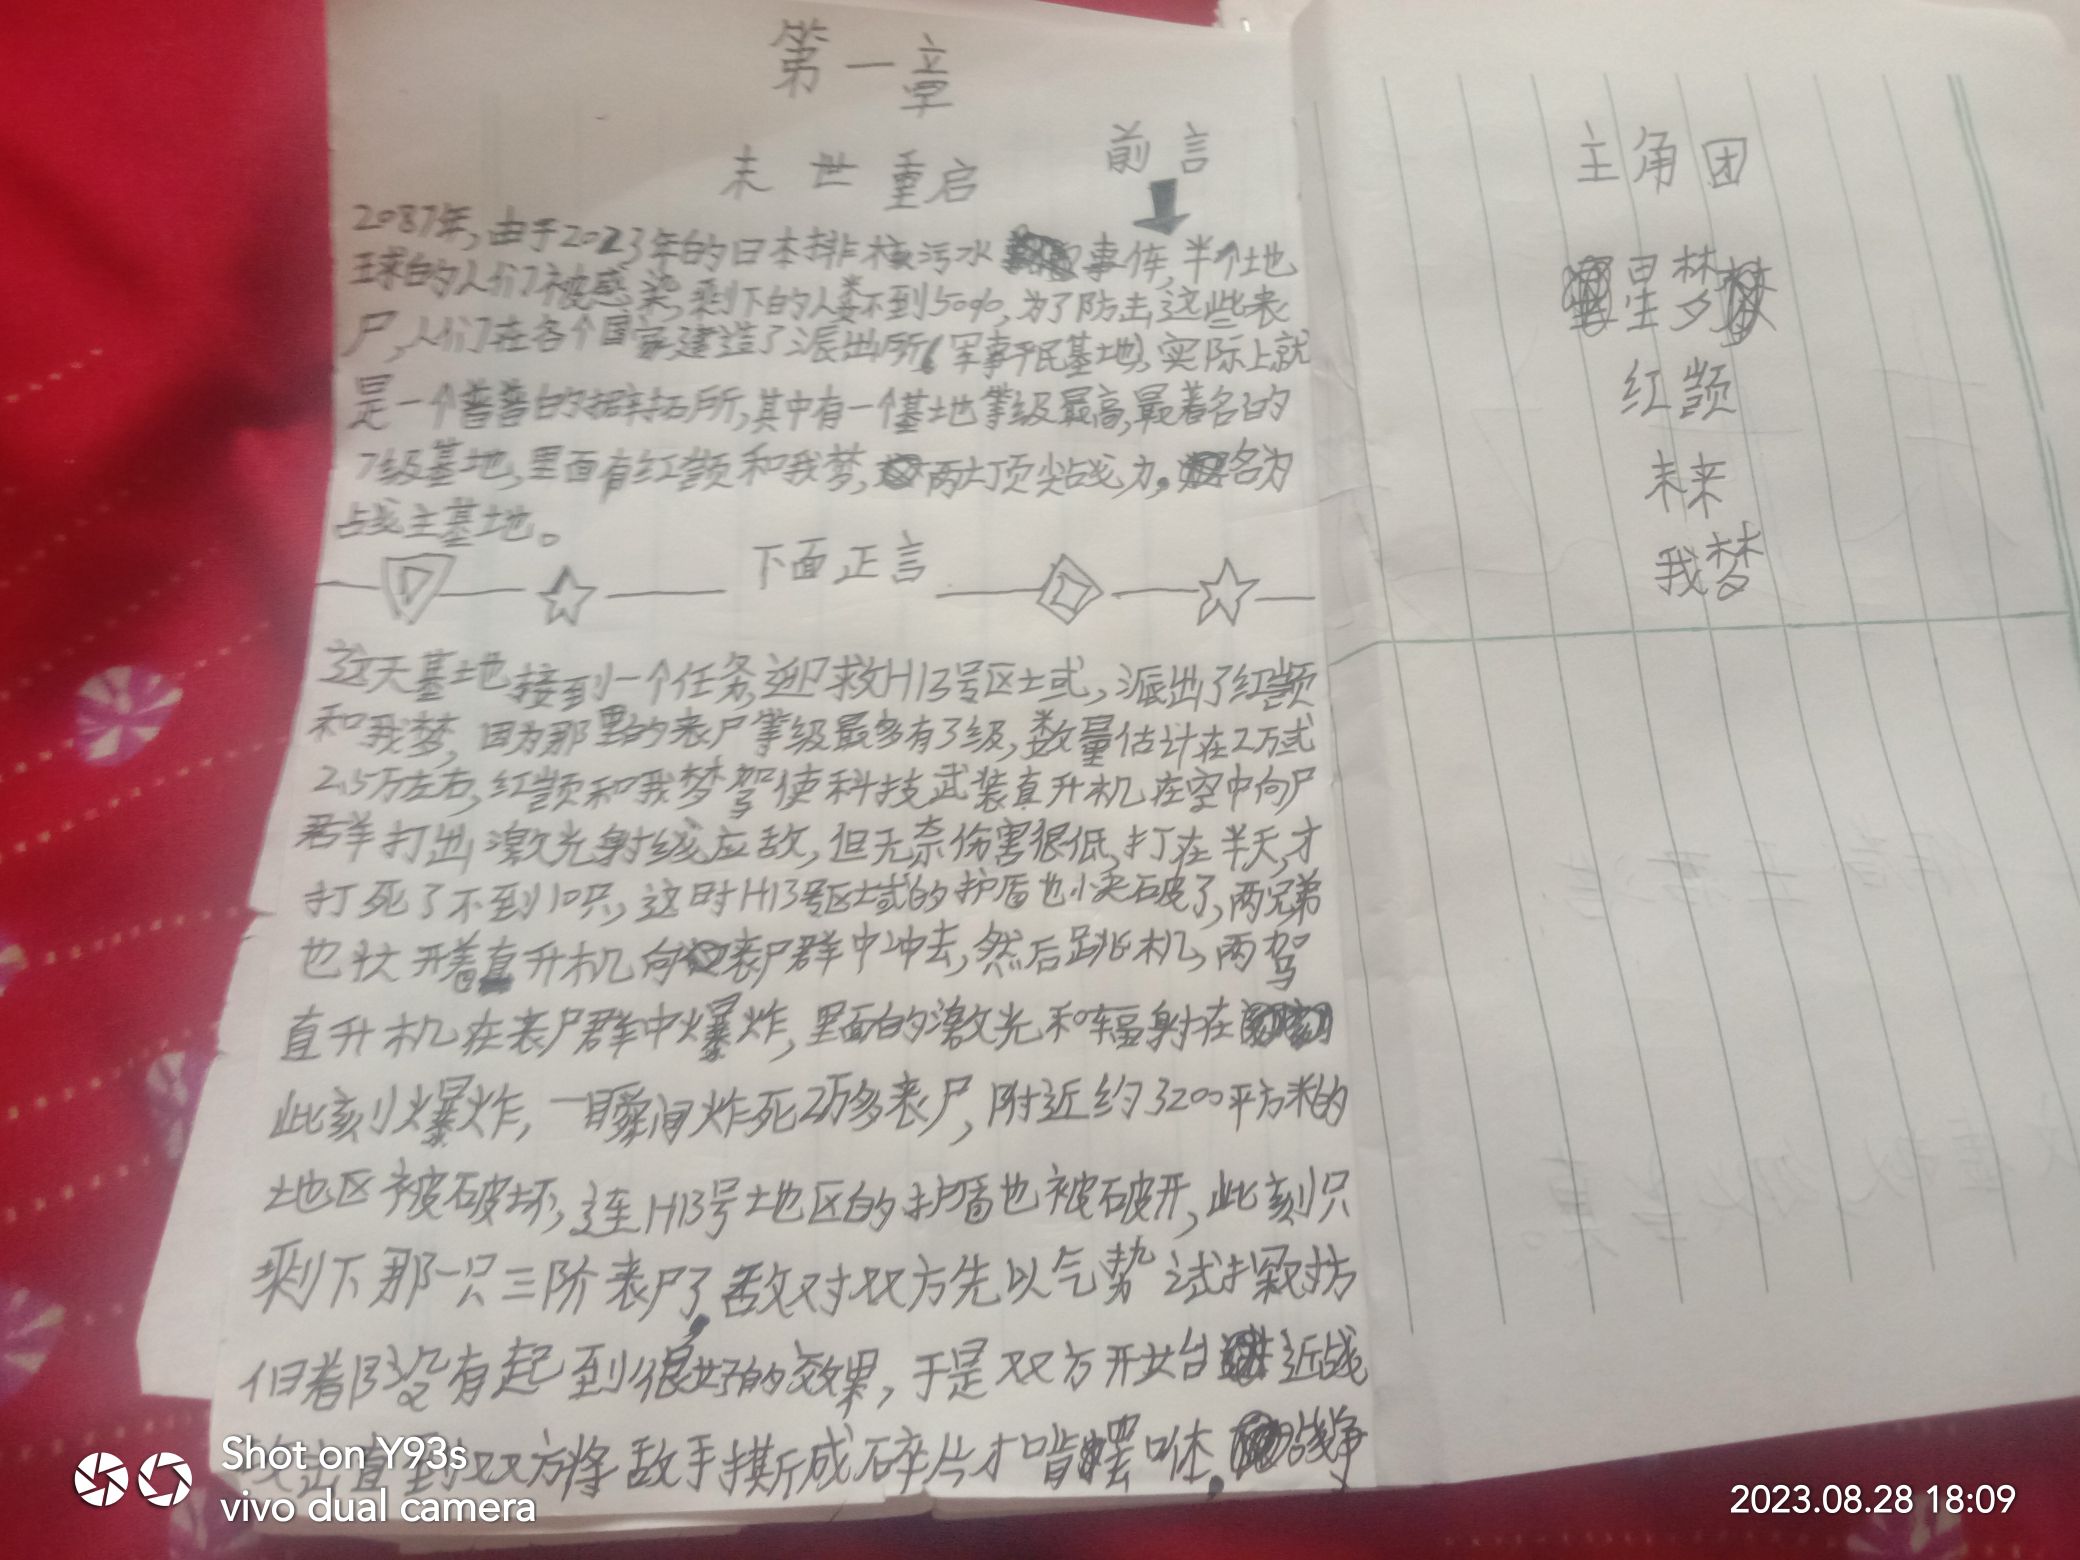 第一章
末世重启
前言
2087年,由于2023年的日本排核污水事件,半个地
球的人们被感染,剩下的人类不到50%,为了防击这些丧
尸,人们在各个国家建造了派出所(军事平民基地),实际上就
是一个普普的所,其中有一个基地等级最高,最著名的
7级基地,里面有红颜和我梦,两大顶尖战力。名为
战主基地。
下面正言
这天基地接到一个任务,迎救H13号区域,派出了红颜
和我梦,因为那里的丧尸等级最多有3级,数量估计在2万或
2.5万左右,红颜和我梦驾使科技武装直升机在空中向尸
群打出激光射线应敌,但无奈伤害很低,打在半天,才
打死了不到10只,这时H13号区域的护盾也小柔破了,两兄弟
也状开着直升机向丧尸群中冲去,然后跳机,两驾
直升机在丧尸群中爆炸,里面的激光和辐射在
此刻爆炸,一瞬间炸死2万多丧尸,附近约3200平方米的
地区被破坏,连H13号地区的护盾也被破开,此刻只
剩下那一只三阶丧尸了,敌对双方先以气势试探对方
但着都没有起到很好的效果,于是双方开始近战
直到双方将敌手撕成碎片才肯罢咻。战争
主角团
星梦
红颜
未来
我梦
Shot on Y93s
vivo dual camera
2023.08.28 18:09